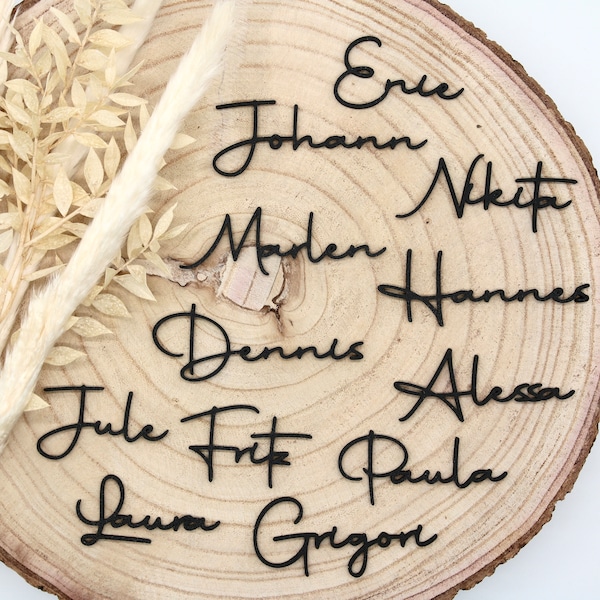 Enie
Johann
Nikita
Marlen
Hannes
Dennis
Alessa
Jule
Fritz
Paula
Laura
Grigori